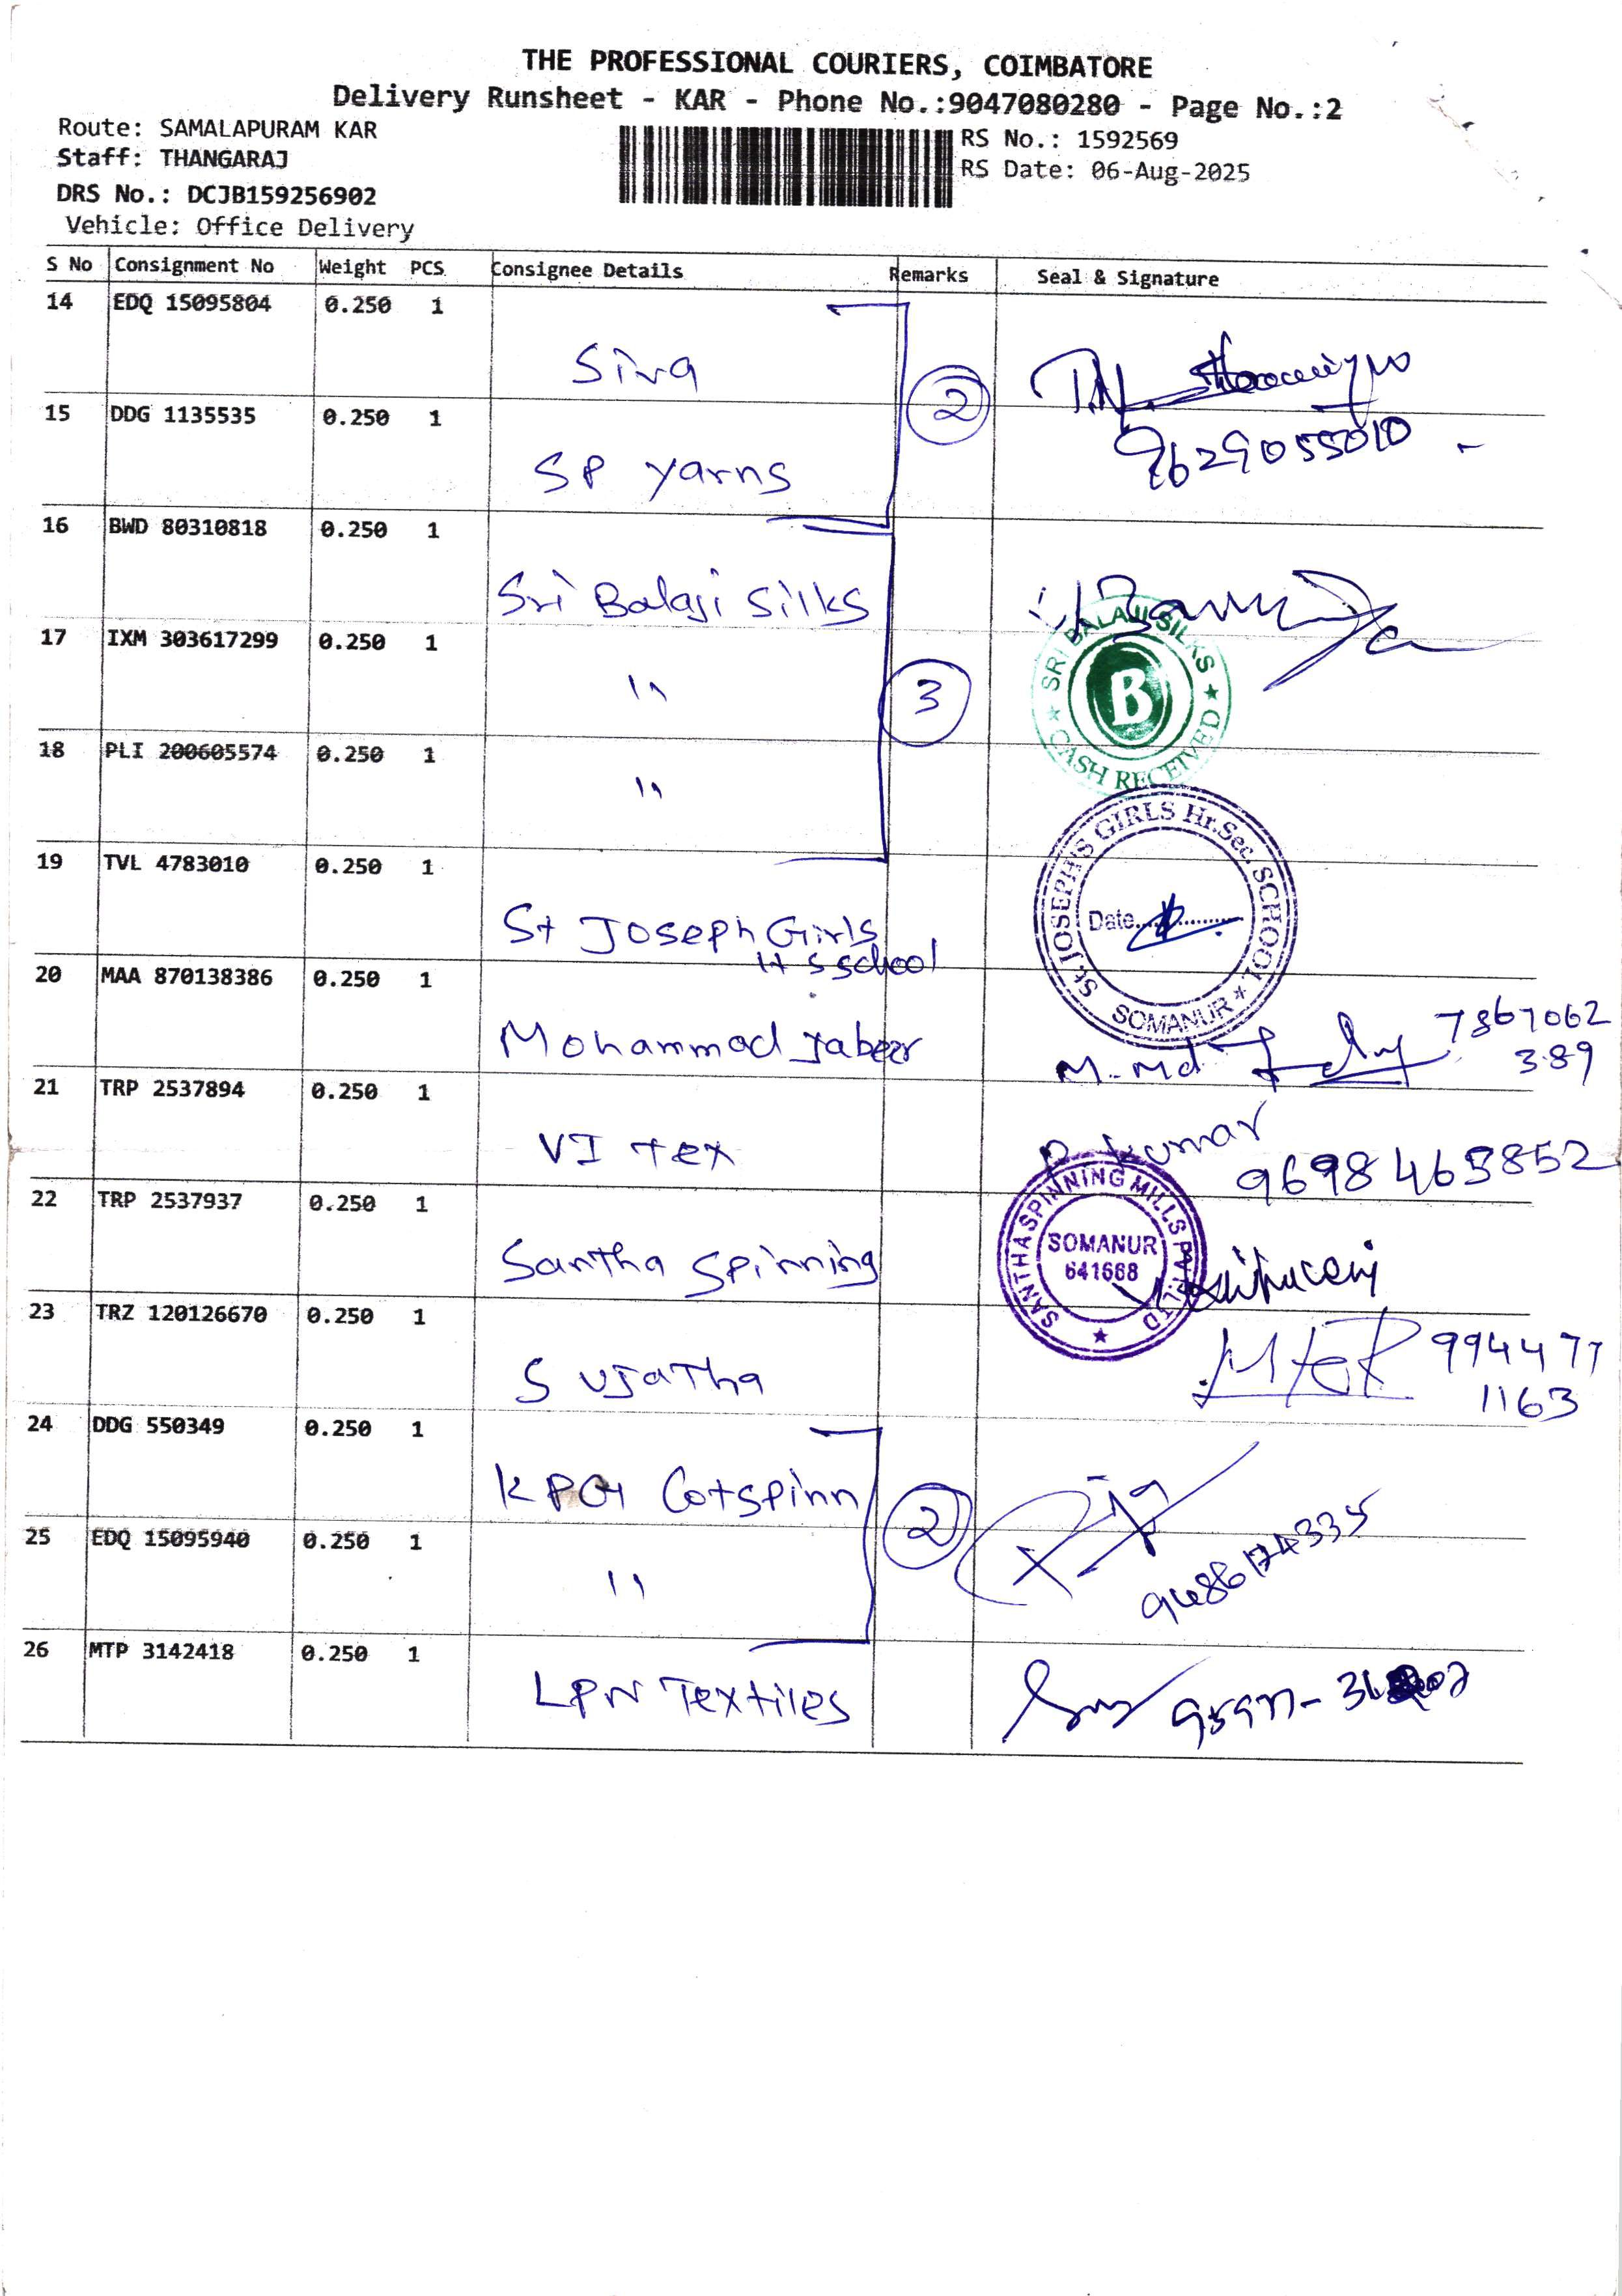 THE PROFESSIONAL COURIERS, COIMBATORE
Delivery Runsheet - KAR - Phone No.:9047080280 - Page No.:2
Route: SAMALAPURAM KAR
Staff: THANGARAJ
DRS No.: DCJB159256902
Vehicle: Office Delivery
RS No.: 1592569
RS Date: 06-Aug-2025
S No Consignment No Weight PCS Consignee Details Remarks Seal & Signature
14 EDQ 15095804 0.250 1
Siva
2
15 DDG 1135535 0.250 1
9629055010
SP Yarns
16 BWD 80310818 0.250 1
Sri Balaji Silks
17 IXM 303617299 0.250 1
SRI BALAJI SILKS
B
CASH RECEIVED
"
3
18 PLI 200605574 0.250 1
"
19 TVL 4783010 0.250 1
ST. JOSEPH'S GIRLS Hr.Sec. SCHOOL
Date
SOMANUR
St Joseph Girls
H S School
20 MAA 870138386 0.250 1
Mohammad Jabeer
M. Md
7867062
389
21 TRP 2537894 0.250 1
VI Tex
P. Kumar
9698465852
22 TRP 2537937 0.250 1
Santha Spinning
SANTHA SPINNING MILLS PVT. LTD
SOMANUR
641668
23 TRZ 120126670 0.250 1
Sujatha
994477
1163
24 DDG 550349 0.250 1
KPG Cotspinn
2
25 EDQ 15095940 0.250 1
"
9486174335
26 MTP 3142418 0.250 1
LPN Textiles